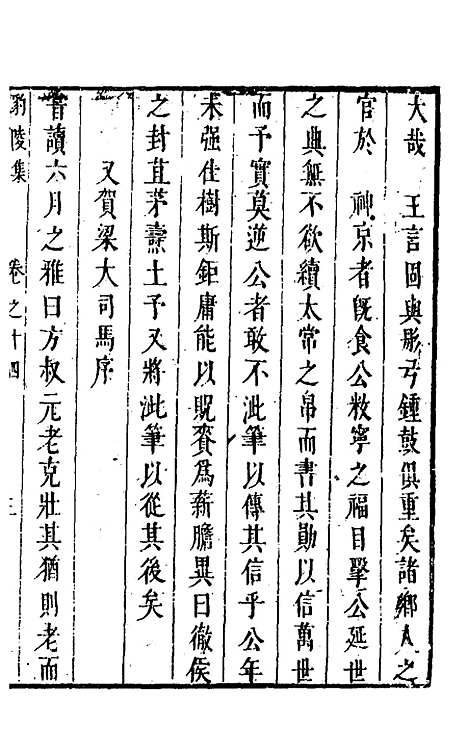 大哉　王言固與彤弓鍾鼓俱重矣諸鄉人之
官於　神京者旣食公敉寧之福目擊公延世
之典無不欲續太常之帛而書其勛以信萬世
而予實莫逆公者敢不泚筆以傳其信乎公年
未强仕樹斯鉅庸能以貺賚爲薪膽異日徹侯
之封苴茅燾土予又將泚筆以從其後矣
又賀梁大司馬序
昔讀六月之雅曰方叔元老克壯其猶則老而
豹陵集　卷之十四　三